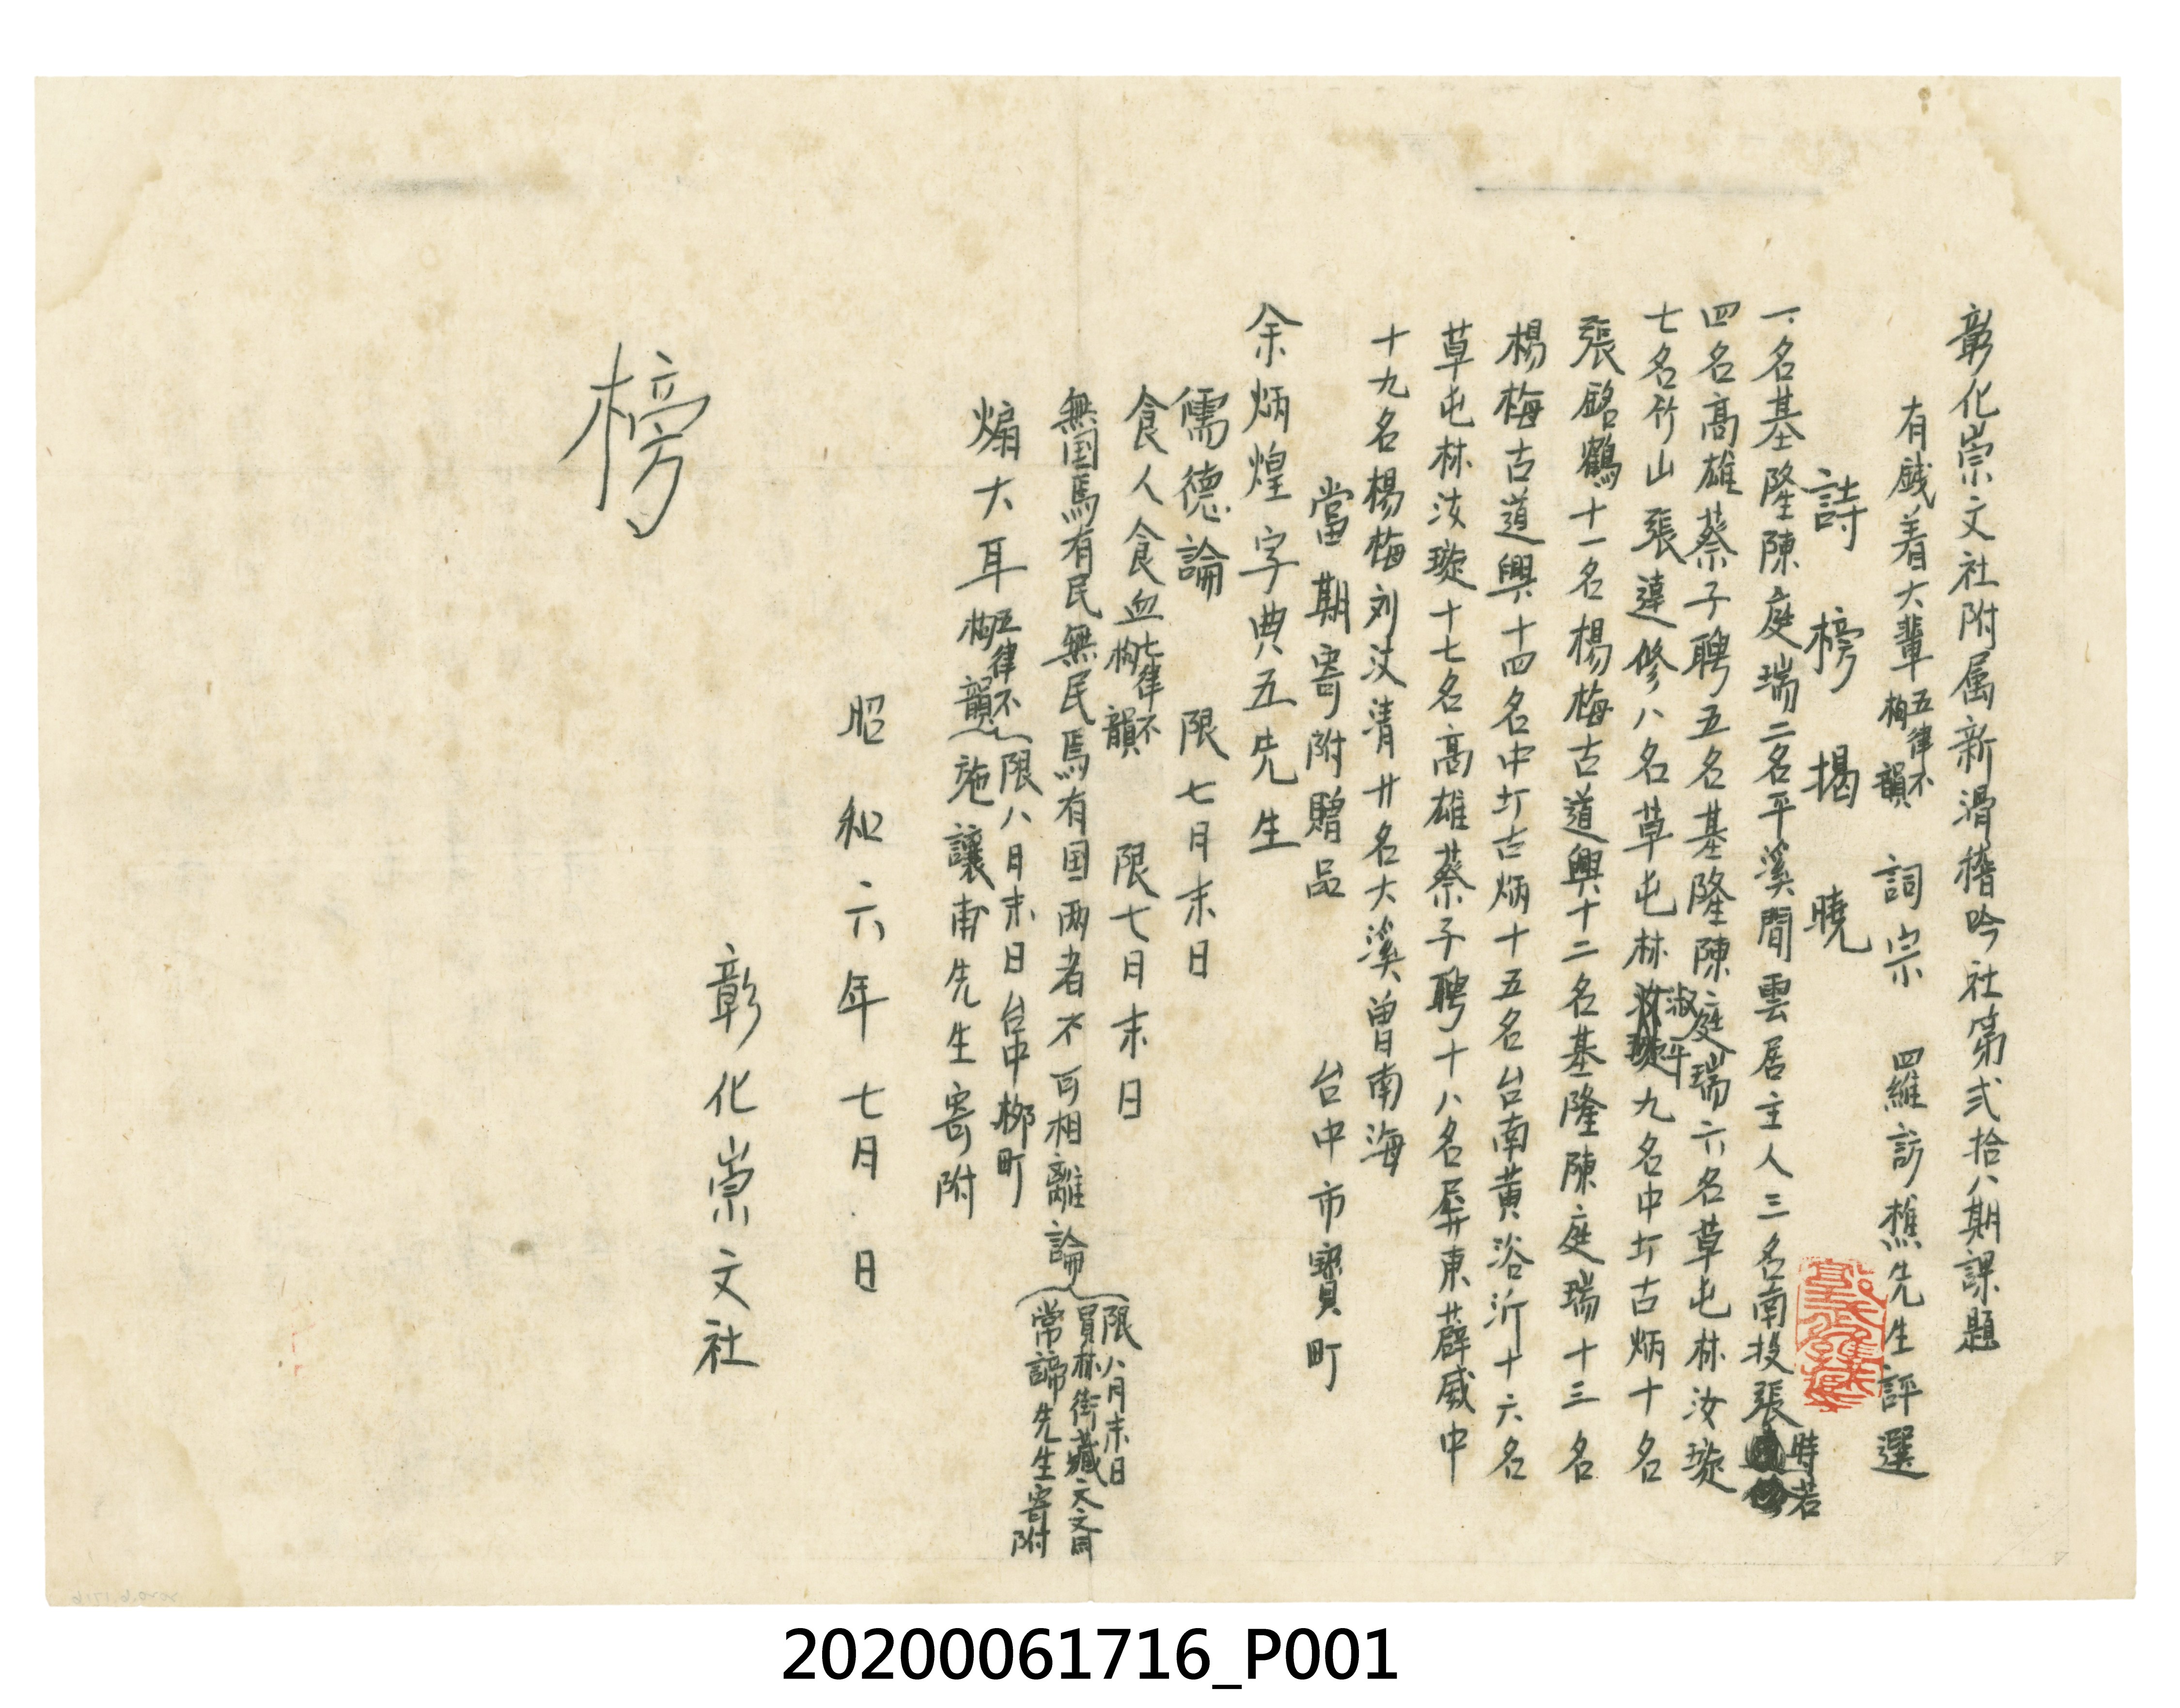 彰化崇文社附属新滑稽吟社第弍拾八期課題
有錢着大輩 五律不拘韻 詞宗 羅訪樵先生評選
詩榜揭曉
一名基隆陳庭瑞二名平溪閒雲居主人三名南投張時若
四名高雄蔡子聘五名基隆陳庭瑞六名草屯林汝璇
七名竹山張達修八名草屯林淑平九名中圹古炳十名
張銘鶴十一名楊梅古道興十二名基隆陳庭瑞十三名
楊梅古道興十四名中圹古炳十五名台南黃浴沂十六名
草屯林汝璇十七名高雄蔡子聘十八名屏東薜威中
十九名楊梅刘汶清廿名大溪曾南海
當期寄附贈品 台中市寶町
余炳煌字典五先生
儒德論 限七月末日
食人食血 七律不拘韻 限七月末日
無国焉有民無民焉有国両者不可相離論 限八月末日
員林街藏天文斋
常諦先生寄附
煽大耳 五律不拘韻 限八月末日台中柳町
施讓甫先生寄附
昭和六年七月.日
彰化崇文社
榜
20200061716_P001